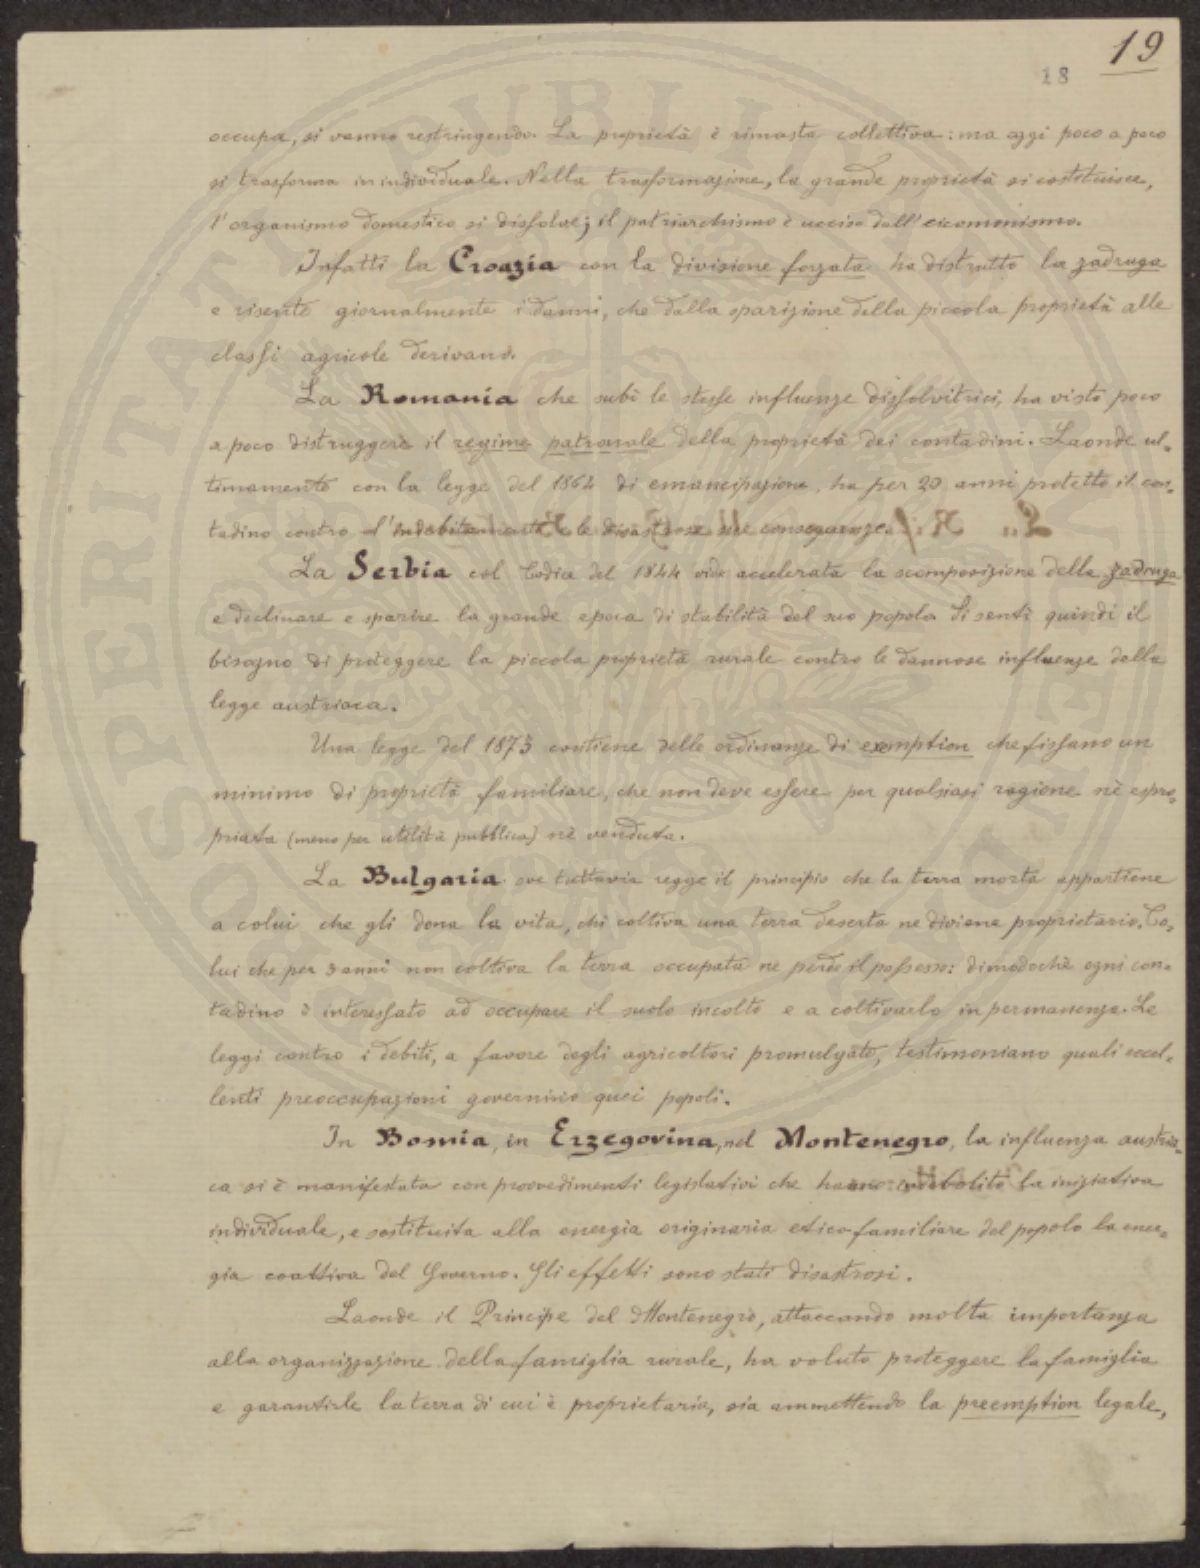 19
18
occupa, si vanno restringendo. La proprietà è rimasta collettiva: ma oggi poco a poco
si trasforma in individuale. Nella trasformazione, la grande proprietà si costituisce,
l'organismo domestico si dissolve; il patriarchismo è ucciso dall'
Infatti la Croazia con la divisione forzata ha distrutto la zadruga
e risente giornalmente i danni, che dalla sparizione della piccola proprietà alle
classi agricole derivano.
La Romania che subì le stesse influenze dissolvitrici, ha visto poco
a poco distruggere il regime patronale della proprietà dei contadini. Laonde ul-
timamente con la legge del 1864 di emancipazione, ha per 20 anni protetto il con-
tadino contro l'indebitamento e le disastrose sue conseguenze.
La Serbia col Codice del 1844 vide accelerata la scomposizione della zadruga
e declinare e sparire la grande epoca di stabilità del suo popolo. Si sentì quindi il
bisogno di proteggere la piccola proprietà rurale contro le dannose influenze della
legge austriaca.
Una legge del 1873 contiene delle ordinanze di exemption che fissano un
minimo di proprietà familiare, che non deve essere per qualsiasi ragione nè espro-
priata (meno per utilità pubblica) nè venduta.
La Bulgaria ove tuttavia regge il principio che la terra morta appartiene
a colui che gli dona la vita, chi coltiva una terra deserta ne diviene proprietario. Co-
lui che per 3 anni non coltiva la terra occupata ne perde il possesso: dimodochè ogni con-
tadino è interessato ad occupare il suolo incolto e a coltivarlo in permanenza. Le
leggi contro i debiti, a favore degli agricoltori promulgate, testimoniano quali eccel-
lenti preoccupazioni governino quei popoli.
In Bosnia, in Erzegovina, nel Montenegro, la influenza austria-
ca si è manifestata con provvedimenti legislativi che hanno la iniziativa
individuale, e sostituita alla energia originaria etico-familiare del popolo la ener-
gia coattiva del Governo. Gli effetti sono stati disastrosi.
Laonde il Principe del Montenegro, attaccando molta importanza
alla organizzazione della famiglia rurale, ha voluto proteggere la famiglia
e garantirle la terra di cui è proprietaria, sia ammettendo la preemption legale,